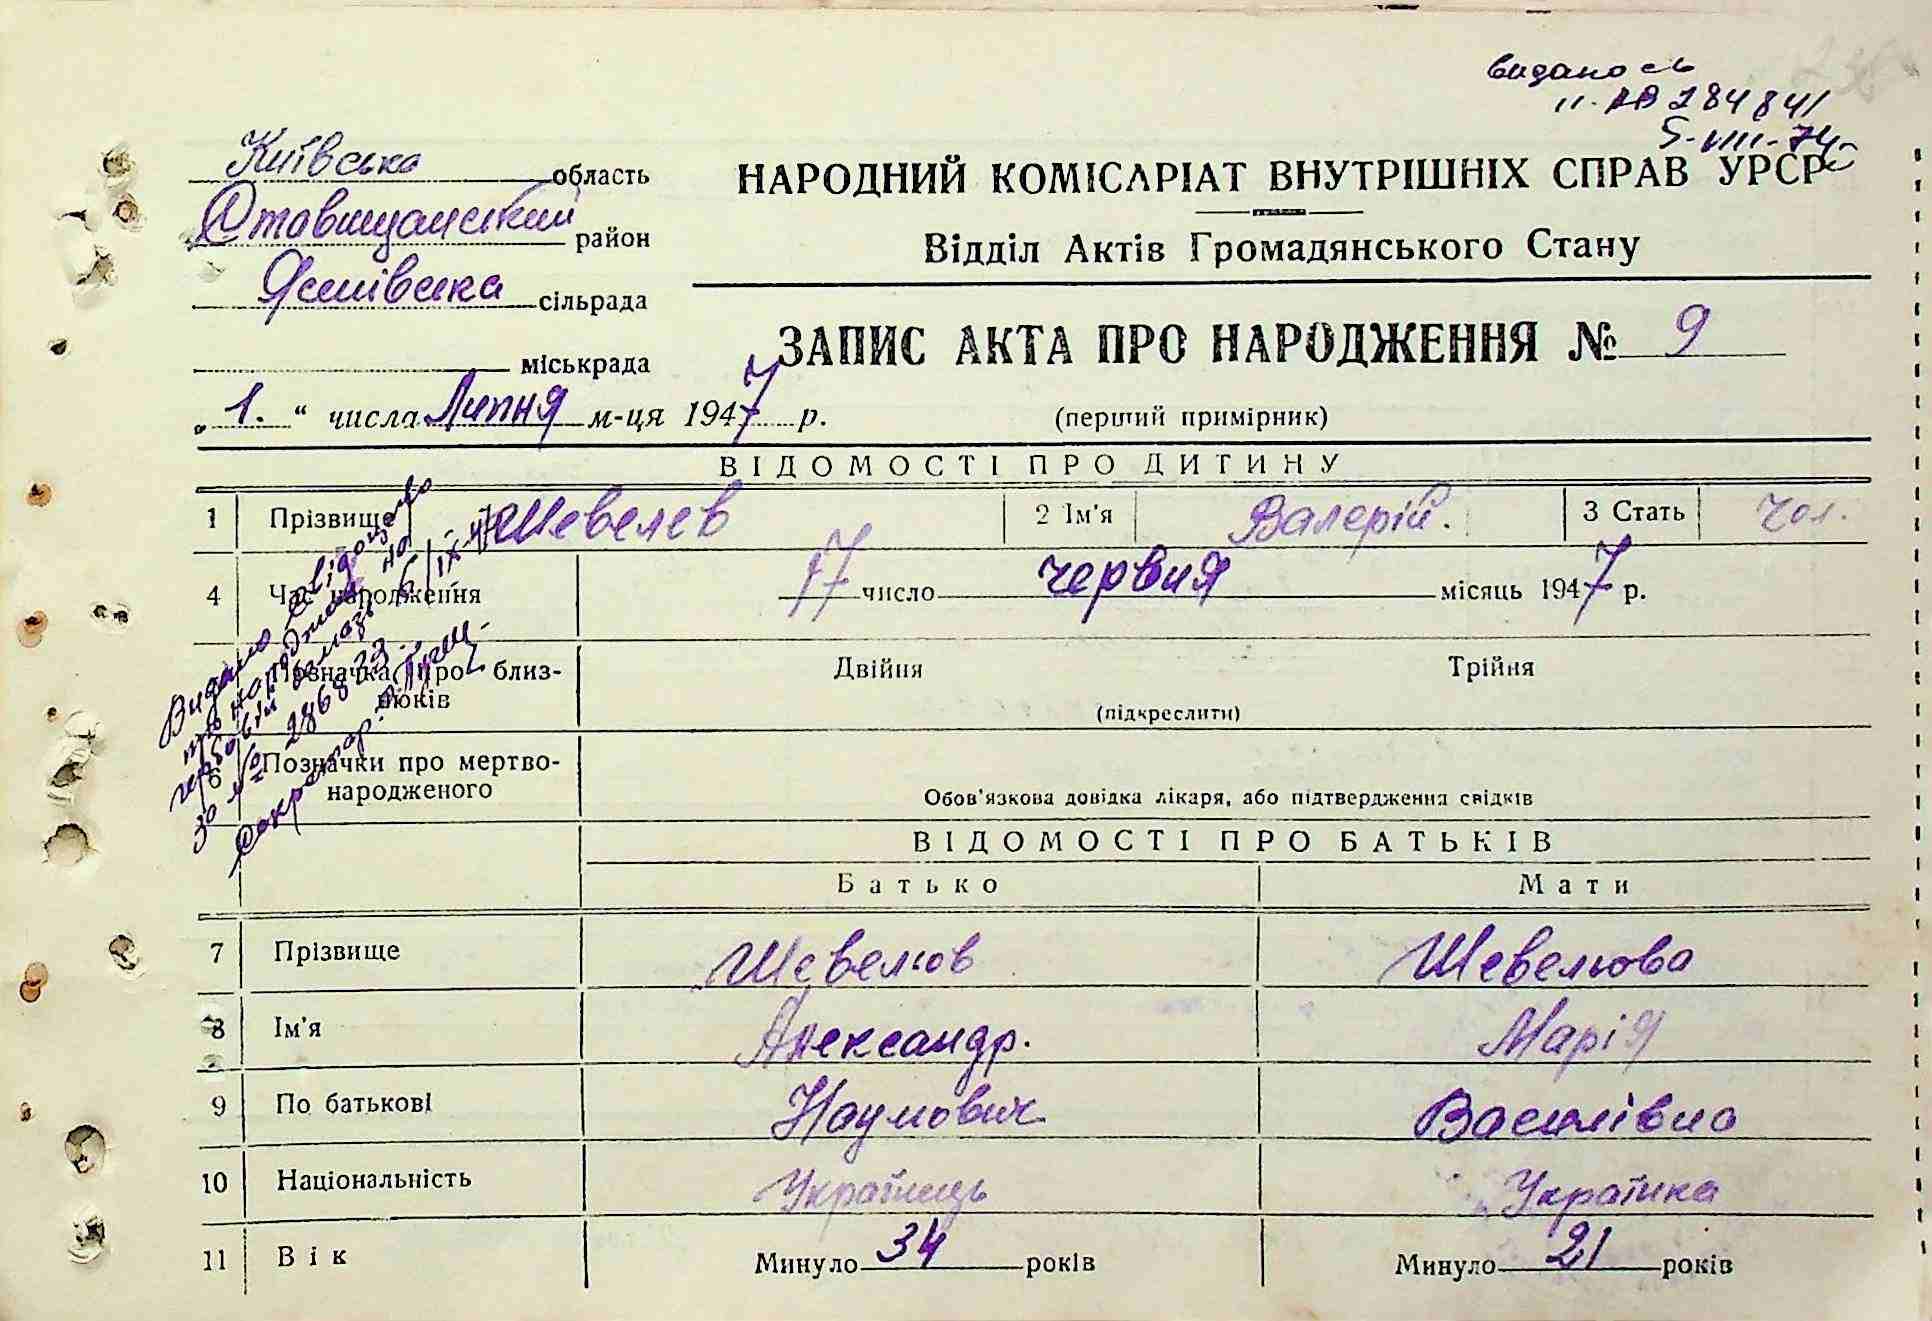 видано св
ІІ-АВ 284841
5-VIII-74
Київська область
НАРОДНИЙ КОМІСАРІАТ ВНУТРІШНІХ СПРАВ УРСР
Ставищанський район
Відділ Актів Громадянського Стану
сільрада
ЗАПИС АКТА ПРО НАРОДЖЕННЯ № 9
міськрада
„1.“ числа Липня м-ця 1947 р.
(перший примірник)
ВІДОМОСТІ ПРО ДИТИНУ
1 Прізвище Шевелев 2 Ім'я Валерій. 3 Стать Чол.
4 Час народження 17 число червня місяць 1947 р.
Позначка про близнюків Двійня Трійня
(підкреслити)
6 Позначки про мертвонародженого
Обов'язкова довідка лікаря, або підтвердження свідків
Видано свідоцтво
про народження на
гербовім бланку 6/IX-47
за № 286823.
Секретар:
ВІДОМОСТІ ПРО БАТЬКІВ
Батько Мати
7 Прізвище Шевельов Шевельова
8 Ім'я Александр. Марія
9 По батькові Наумович Василівна
10 Національність Українець Українка
11 Вік Минуло 34 років Минуло 21 років